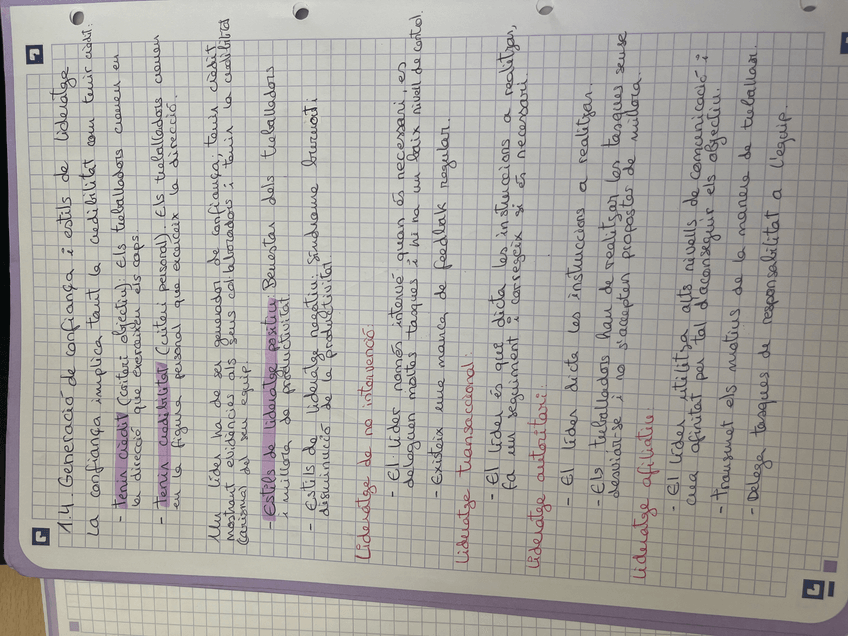 1.4. Generació de confiança i estils de lideratge
La confiança implica tant la credibilitat com tenir crèdit.
- Tenir crèdit (criteri objectiu): Els treballadors creuen en
la direcció que exerceixen els caps.
- Tenir credibilitat (criteri personal). Els treballadors creuen
en la figura personal que exerceix la direcció.
Un líder ha de ser generador de confiança; tenir crèdit
mostrant evidències als seus col·laboradors i tenir la credibilitat
(carisma) del seu equip.
- Estils de lideratge positiu: Benestar dels treballadors
i millora de productivitat
- Estils de lideratge negatiu: Síndrome burnout i
disminució de la productivitat
Lideratge de no intervenció
- El líder només intervé quan és necessari, es
deleguen moltes tasques i hi ha un baix nivell de control.
- Existeix una manca de feedback regular.
Lideratge transaccional:
- El líder és qui dicta les instruccions a realitzar,
fa un seguiment i corregeix si és necessari.
Lideratge autoritari:
- El líder dicta les instruccions a realitzar.
- Els treballadors han de realitzar les tasques sense
desviar-se i no s'accepten propostes de millora.
Lideratge afiliatiu
- El líder utilitza alts nivells de comunicació i
crea afinitat per tal d'aconseguir els objectiu.
- Transmet els motius de la manera de treballar.
- Delega tasques de responsabilitat a l'equip.